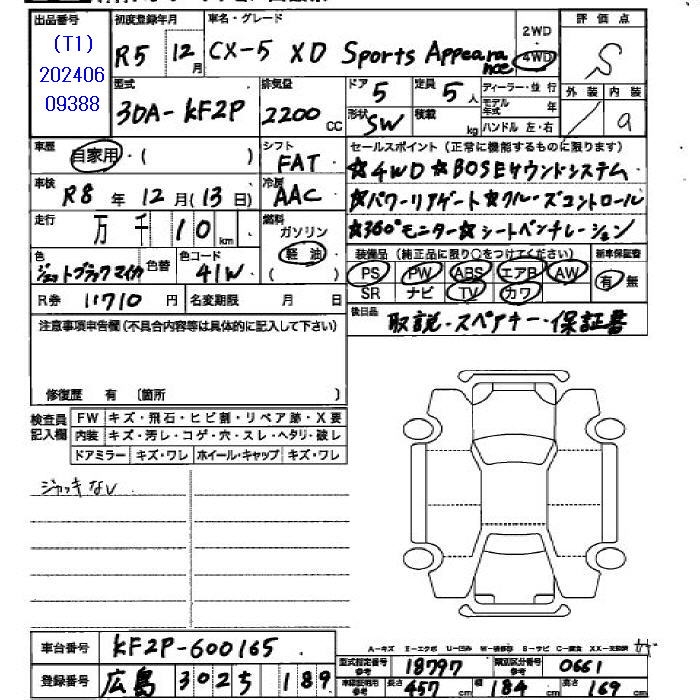 出品番号
(T1)
202406
09388
初度登録年月
R5 12月
車名・グレード
CX-5 XD Sports Appearance
2WD
4WD
評価点
S
型式
3DA-KF2P
排気量
2200 CC
ドア
5
定員
5 人
形状
SW
積載
kg
ディーラー・並行
モデル年式 年
ハンドル 左・右
外装 内装
/ a
車歴
自家用・( )
シフト
FAT
セールスポイント (正常に機能するものに限ります)
☆4WD ☆BOSEサウンドシステム
☆パワーリアゲート☆クルーズコントロール
☆360°モニター☆シートベンチレーション
車検
R8 年 12月(13日)
冷房
AAC
走行
万 千 10 km
燃料
ガソリン
軽油
( )
色
ジェットブラックマイカ
色替
色コード
41W
装備品 (純正品に限り○をつけてください)
新車保証書
PS PW ABS エアB AW
有 無
SR ナビ TV カワ
R券 11710 円
名変期限 月 日
後日品
取説・スペアキー・保証書
注意事項申告欄 (不具合内容等は具体的に記入して下さい)
修復歴 有 〔箇所 〕
検査員記入欄
FW キズ・飛石・ヒビ割・リペア跡・X要
内装 キズ・汚レ・コゲ・穴・スレ・ヘタリ・破レ
ドアミラー キズ・ワレ ホイール・キャップ キズ・ワレ
ジャッキなし
車台番号
KF2P-600165
登録番号
広島 302 5 189
A-キズ E-エクボ U-凹み
型式指定番号 参考
18797
類別区分番号 参考
0661
車検証明寸 参考
長さ 457 cm 幅 184 cm 高さ 169 cm